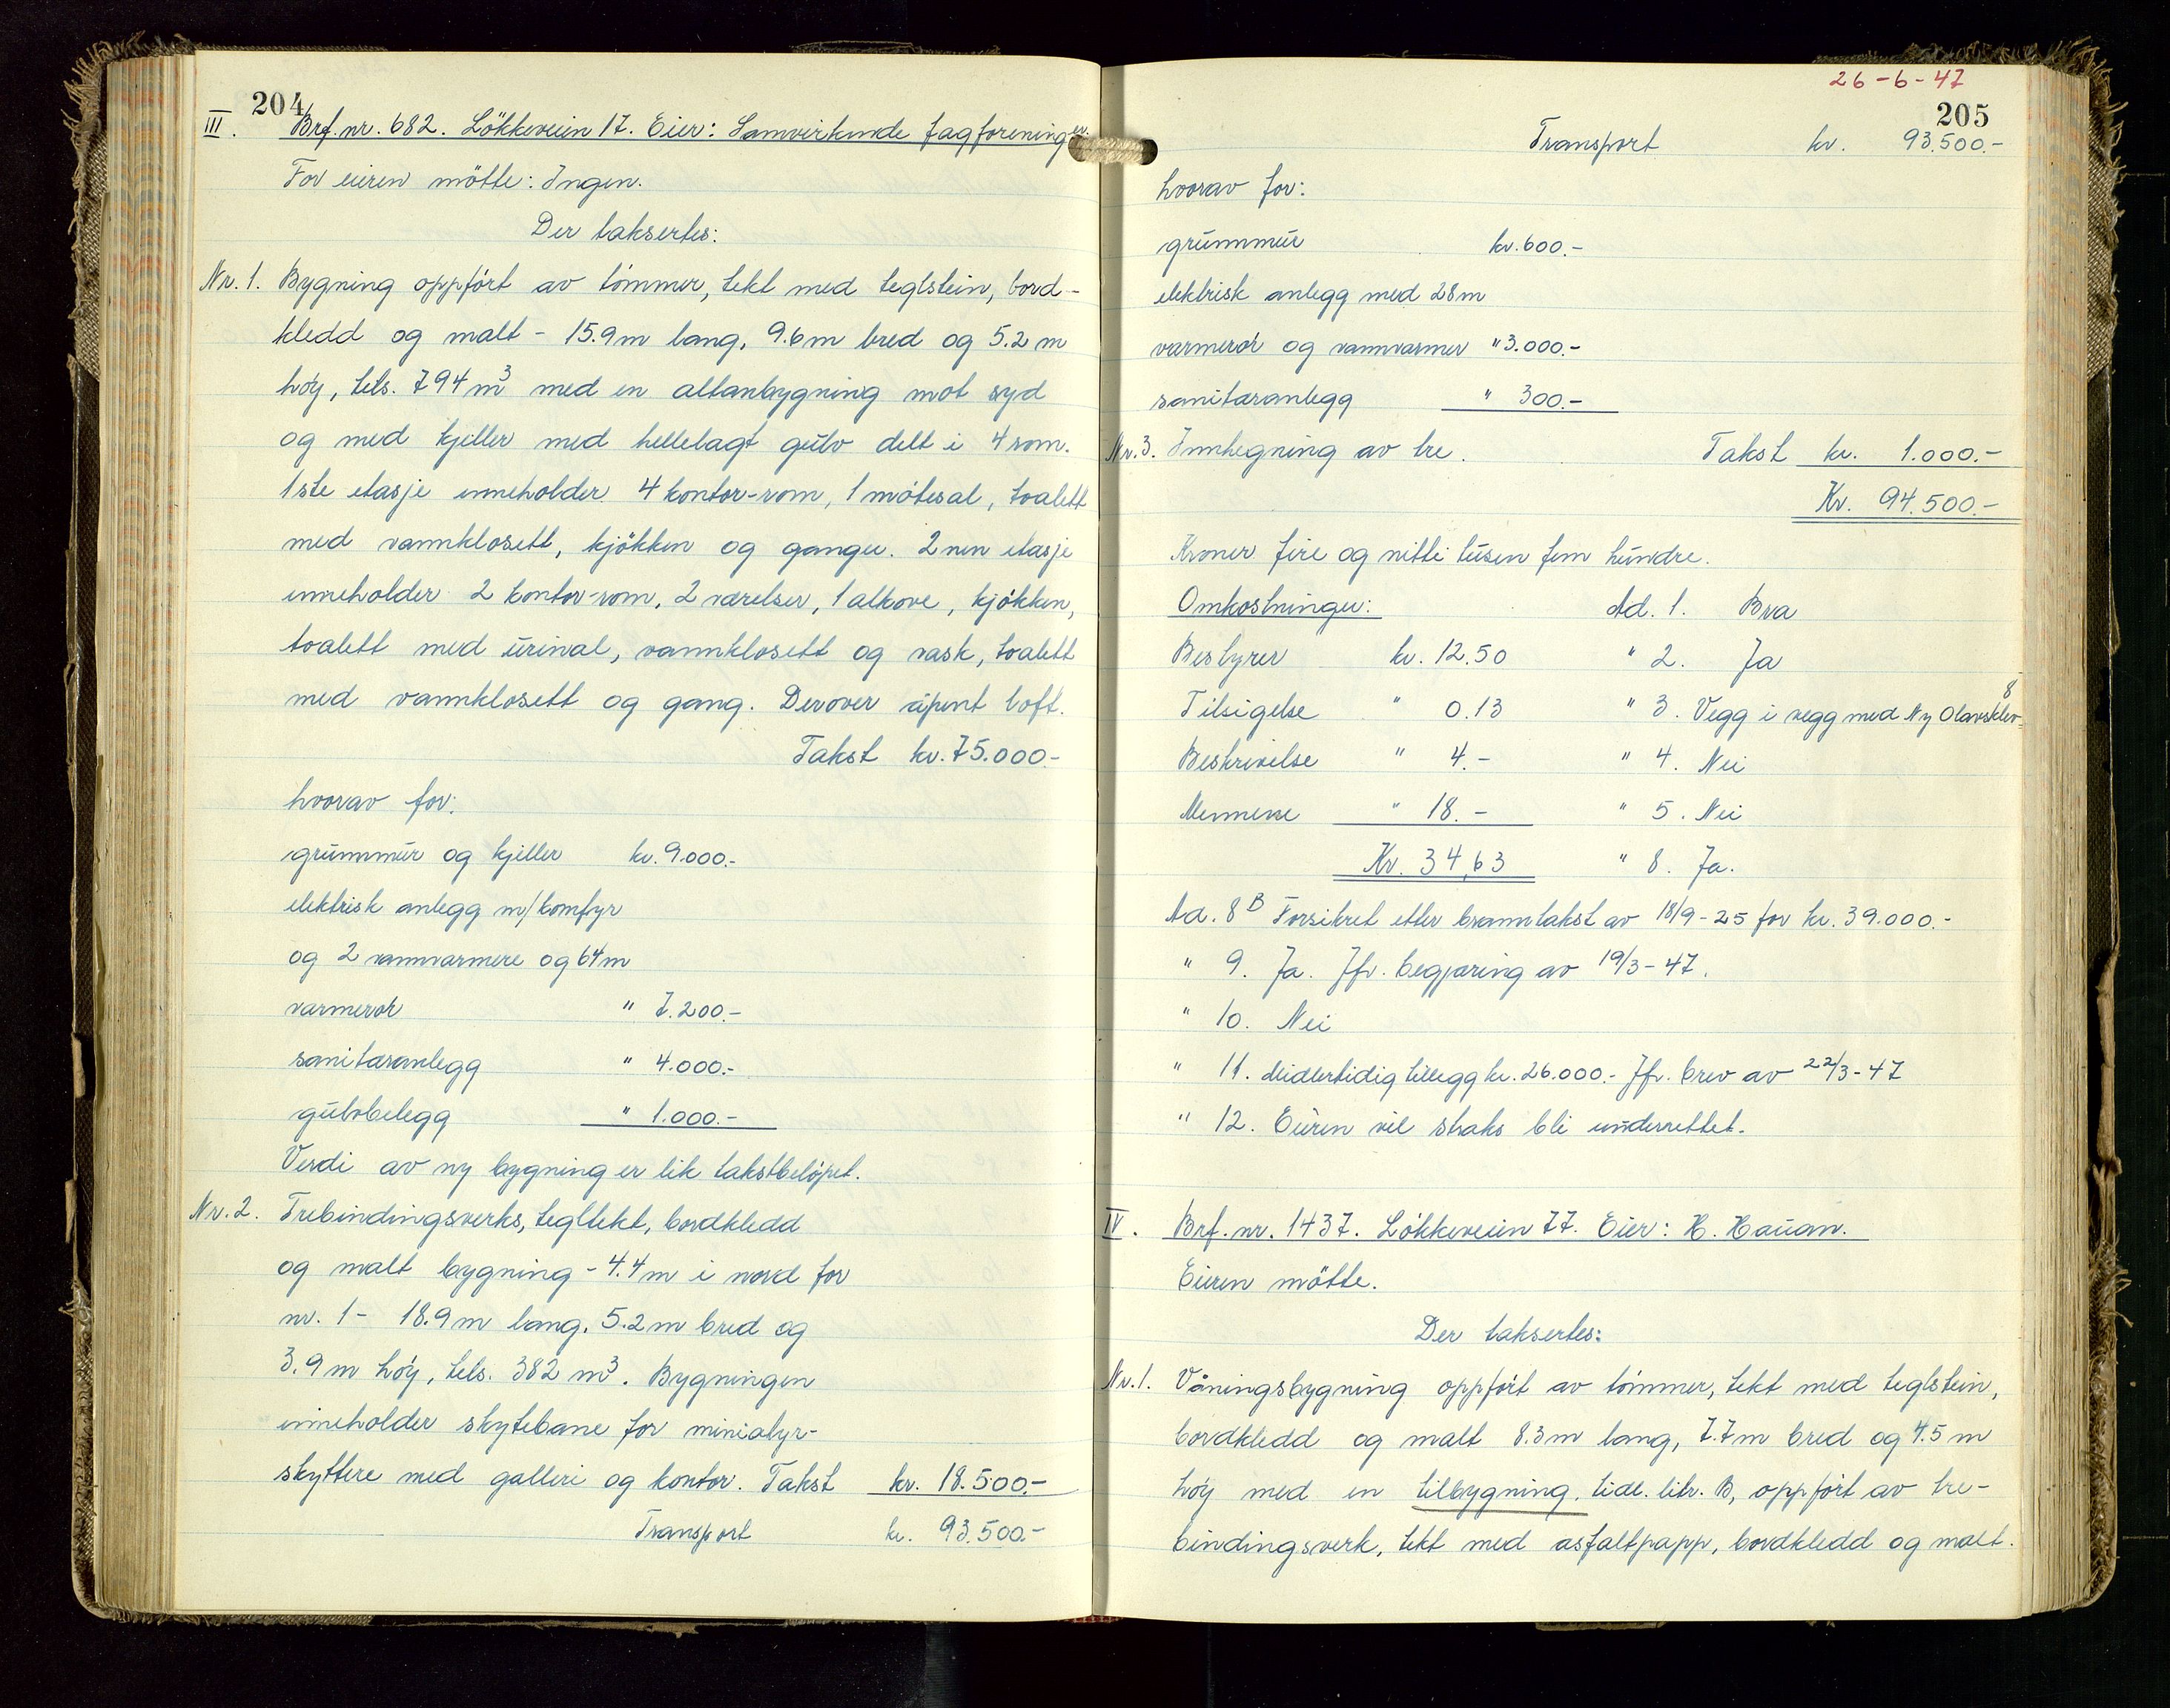 204
III. Brf. nr. 682. Lökkeveien 17. Eier: Samvirkende fagforeninger.
For eieren mötte: Ingen.
Der taksertes:
Nr. 1. Bygning oppfört av tömmer, tekt med teglstein, bord-
kledd og malt - 15.9 m lang, 9.6 m bred og 5.2 m
höy, tils. 794 m³ med en altanbygning mot syd
og med kjeller med hellelagt gulv delt i 4 rom.
1ste etasje inneholder 4 kontor-rom, 1 mötesal, toalett
med vannklosett, kjökken og ganger. 2nen etasje
inneholder 2 kontor-rom, 2 værelser, 1 alkove, kjökken,
toalett med urinal, vannklosett og vask, toalett
med vannklosett og gang. Derover åpent loft.
Takst kr. 75.000.-
hvorav for:
grunnmur og kjeller kr. 9.000.-
elektrisk anlegg m/komfyr
og 2 vannvarmere og 64 m
varmerör " 7.200.-
sanitæranlegg " 4.000.-
gulvbelegg " 1.000.-
Verdi av ny bygning er lik takstbelöpet.
Nr. 2. Trebindingsverks, tegltekt, bordkledd
og malt bygning - 4.4 m i nord for
nr. 1 - 18.9 m lang, 5.2 m bred og
3.9 m höy, tils. 382 m³. Bygningen
inneholder skytebane for miniatyr-
skyttere med galleri og kontor. Takst kr. 18.500.-
Transport kr. 93.500.-
26-6-47
205
Transport kr. 93.500.-
hvorav for:
grunnmur kr. 600.-
elektrisk anlegg med 28 m
varmerör og vannvarmer " 3.000.-
sanitæranlegg " 300.-
Nr. 3. Innhegning av tre. Takst kr. 1.000.-
Kr. 94.500.-
Kroner fire og nitti tusen fem hundre.
Omkostninger: Ad. 1. Bra
Bestyrer kr. 12.50 " 2. Ja
Tilsigelse " 0.13 " 3. Vegg i vegg med Ny Olavsklev 8
Beskrivelse " 4.- " 4. Nei
Mennene " 18.- " 5. Nei
Kr. 34,63 " 8. Ja.
Ad. 8 B Forsikret etter branntakst av 18/9-25 for kr. 39.000.-
" 9. Ja. Jfr. begjæring av 19/3-47.
" 10. Nei
" 11. Midlertidig tillegg kr. 26.000.- Jfr. brev av 22/3-47
" 12. Eieren vil straks bli underrettet.
IV. Brf. nr. 1437. Lökkeveien 77. Eier: H. Hauan.
Eieren mötte.
Der taksertes:
Nr. 1. Våningsbygning oppfört av tömmer, tekt med teglstein,
bordkledd og malt 8.3 m lang, 7.7 m bred og 4.5 m
höy med en tilbygning, tidl. litr. B, oppfört av tre-
bindingsverk, tekt med asfaltpapp, bordkledd og malt.